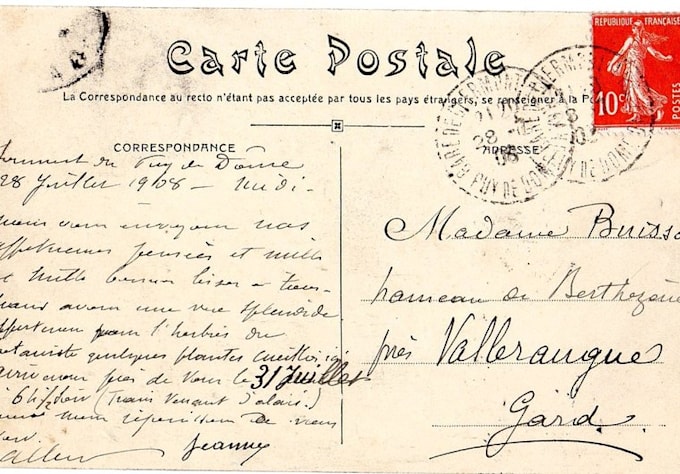 Carte Postale
La Correspondance au recto n'étant pas acceptée par tous les pays étrangers, se renseigner à la Po
RÉPUBLIQUE FRANÇAISE
10c
POSTES
CORRESPONDANCE
ADRESSE
GARE DE CLERMONT
28
08
PUY DE DOME
Sommet du Puy de Dôme
28 Juillet 1908 – Midi –
vous envoyons nos
affectueuses pensées et mille
mille bons baisers
avons une vue splendide
pour l'herbier du
botaniste quelques plantes cueillies ici
près de vous le 31 Juillet
6h 1/2 soir (train venant d'Alais.)
de vous
Jeanne
Madame Buisso
hameau de Berthezène
près Valleraugue
Gard.